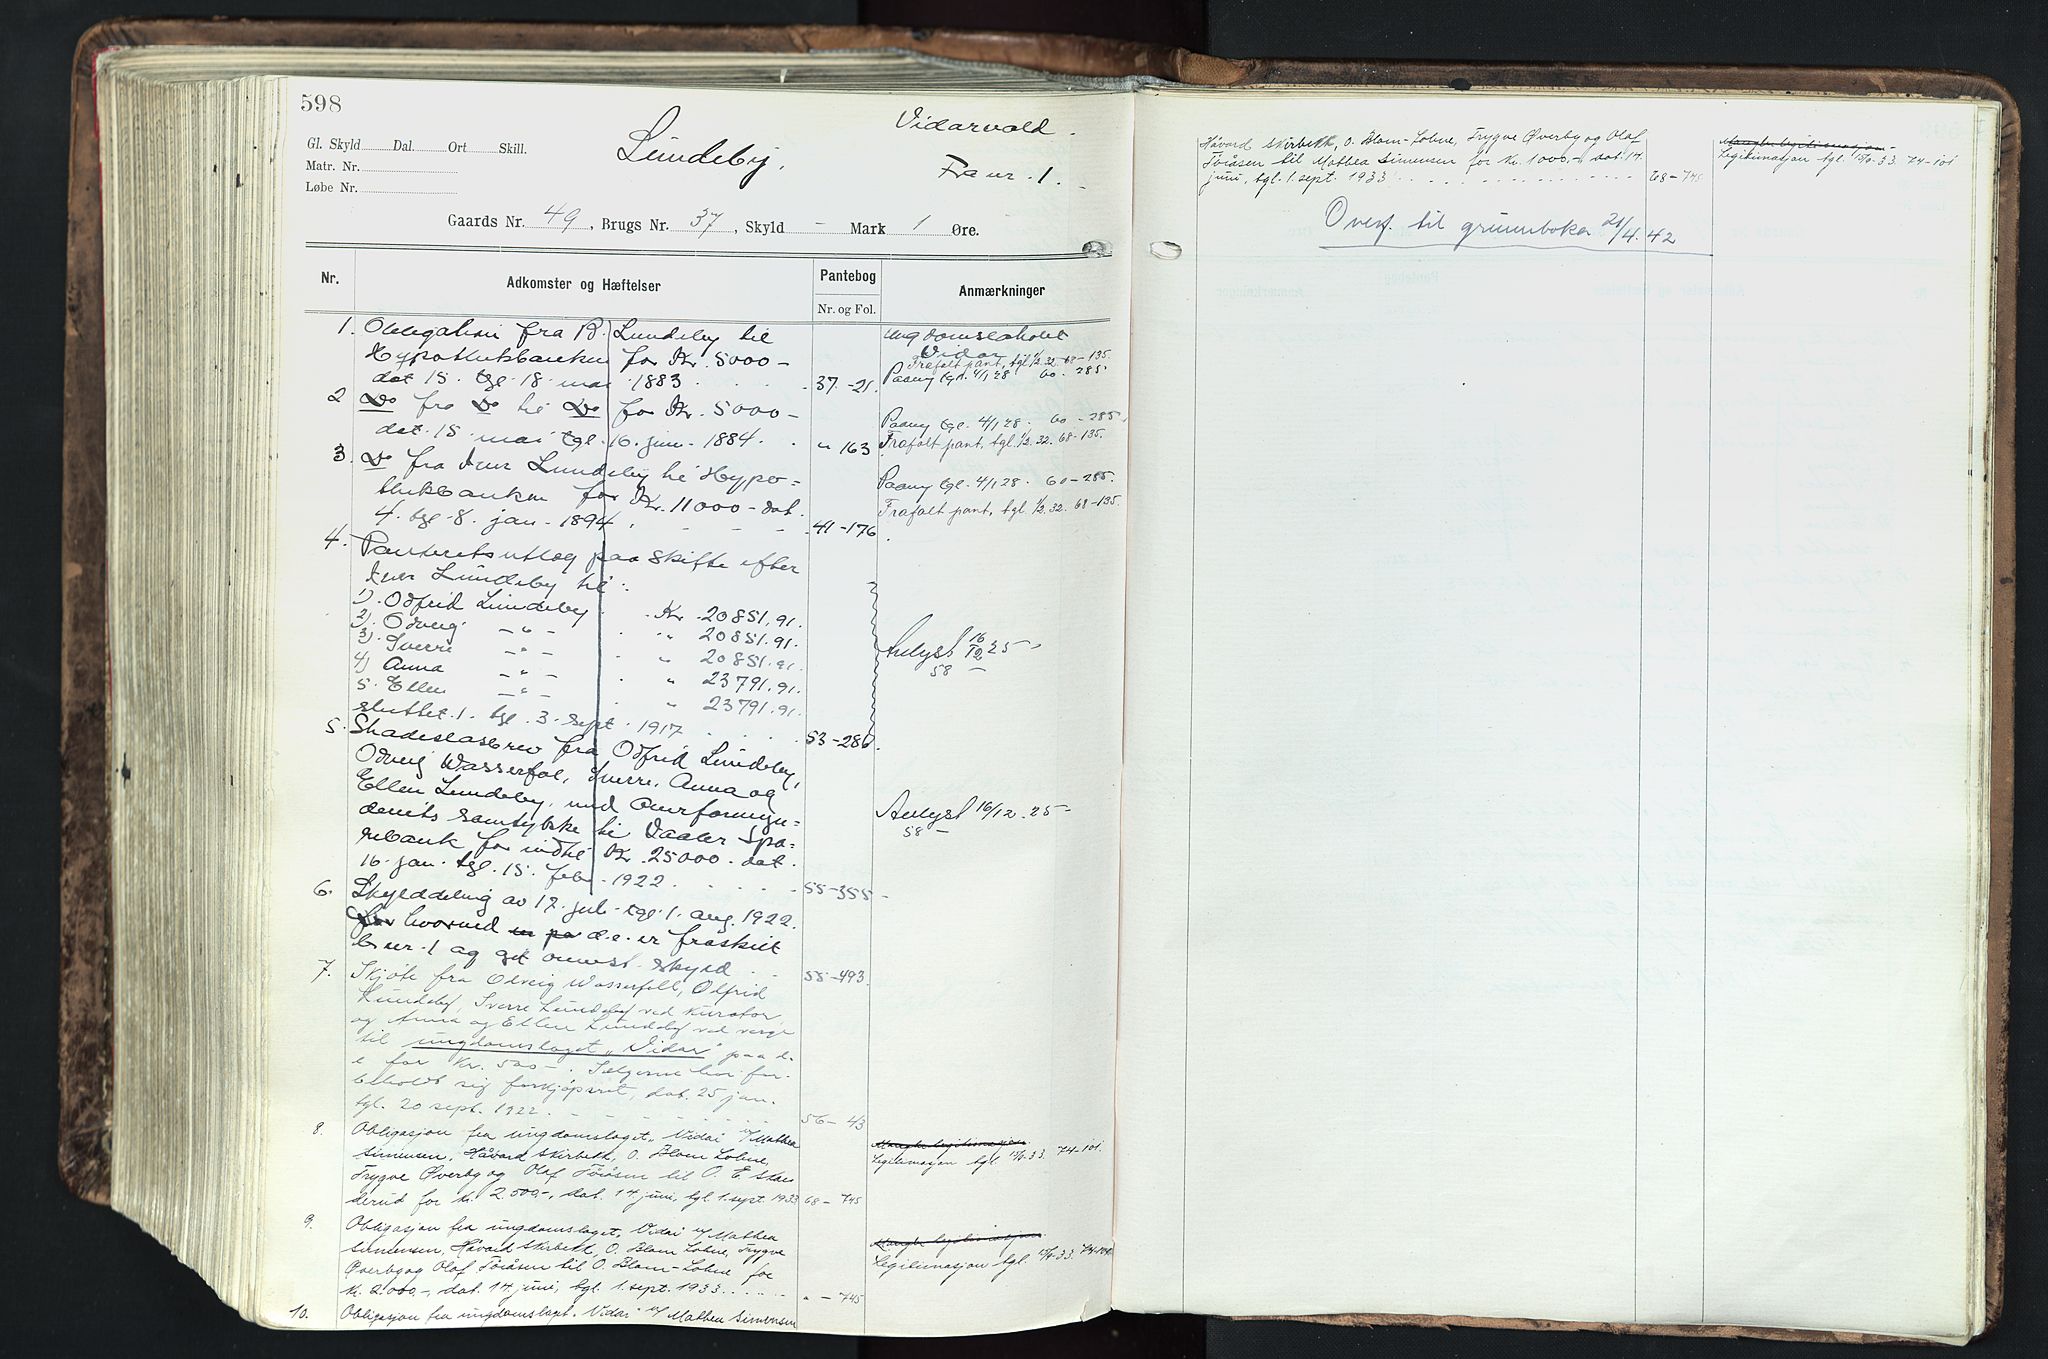 598
Vidarvold.
Gl. Skyld Dal. Ort Skill.
Lundeby.
Matr. Nr.
Fra nr. 1.
Løbe Nr.
Gaards Nr. 49, Brugs Nr. 37, Skyld – Mark 1 Øre.
Nr. Adkomster og Hæftelser Pantebog Anmærkninger
Nr. og Fol.
1. Obligation fra B. Lundeby til
Hypothekbanken for Kr. 5000 –
dat 15. tgl. 18. mai 1883 37 - 21.
Ungdomslokal
Vidar
Frafalt pant, tgl. 1/2. 32. 68 - 135.
Paany tgl. 4/1 28. 60 - 285
2 Do fra Do til Do for Kr. 5000 –
dat. 15. mai tgl. 16. juni 1884. " 163
Paany tgl. 4/1 28. 60 - 285.
Frafalt pant, tgl. 1/2. 32. 68 - 135.
3. Do fra Iver Lundeby til Hypo=
thekbanken for Kr. 11000 – dat.
4. tgl. 8. jan. 1894. 41 - 176
Paany tgl. 4/1 28. 60 - 285.
Frafalt pant, tgl. 1/2. 32. 68 - 135.
4. Panteretsutlæg paa skifte efter
Iver Lundeby til:
1). Odfrid Lundeby Kr. 20851.91.
2). Odveig – " – " 20851.91.
3). Sverre – " – " 20851.91.
4) Anna – " – " 23791.91.
5. Ellen – " – " 23791.91.
sluttet 1. tgl. 3. sept. 1917 53 - 280.
Avlyst 16/12 25
58 –
5. Skadesløsbrev fra Odfrid Lundeby,
Odveig Wasserfal, Sverre, Anna og
Ellen Lundeby, med Overformyn=
deriets samtykke til Vaaler Spa=
rebank for indtil Kr. 25000 - dat.
16. jan. tgl. 15. febr. 1922. 55 - 355
Avlyst 16/12. 25 –
58 –
6. Skylddeling av 17. juli tgl. 1. aug. 1922.
hvorved d.e. er fraskilt
br nr. 1 og git ovenst. skyld 55 - 493.
7. Skjøte fra Odveig Wasserfall, Odfrid
Lundeby, Sverre Lundeby ved kurator
og Anna og Ellen Lundeby ved verge
til ungdomslaget "Vidar" paa d.
e for Kr. 500 –. Sælgerne har for=
beholdt sig forkjøpsret, dat. 25 jan.
tgl. 20 sept. 1922. 56 - 43
8. Obligasjon fra ungdomslaget "Vidar" v/ Mathea
Simensen, Håvard Skirbekk, O. Blom Lobne,
Trygve Øverby og Olaf Toråsen til O. E. Skas
derud for kr. 2.500,-, dat. 14 juni, tgl. 1. sept. 1933 68 - 745
Mangler legitimasjon
Legitimasjon tgl. 33. 74 - 101.
9. Obligasjon fra ungdomslaget, Vidar v/ Mathea
Simensen, Håvard Skirbekk, O. Blom Lobne, Trygve
Øverby og Olaf Toråsen til O. Blom-Lobne for
kr. 2.000,-, dat. 14 juni, tgl. 1. sept. 1933. " - 745
Mangler legitimasjon
Legitimasjon tgl. 33. 74 - 101.
10. Obligasjon fra ungdomslaget, Vidar v/ Mathea Simensen
Håvard Skirbekk, O. Blom-Lobne, Trygve Øverby og Olaf
Toråsen til Mathea Simensen for kr. 1000,- dat. 14.
juni, tgl. 1. sept. 1933 68 - 745
Mangler legitimasjon
Legitimasjon tgl. 33. 74 - 101
Overf. til grunnboka 21/4. 42